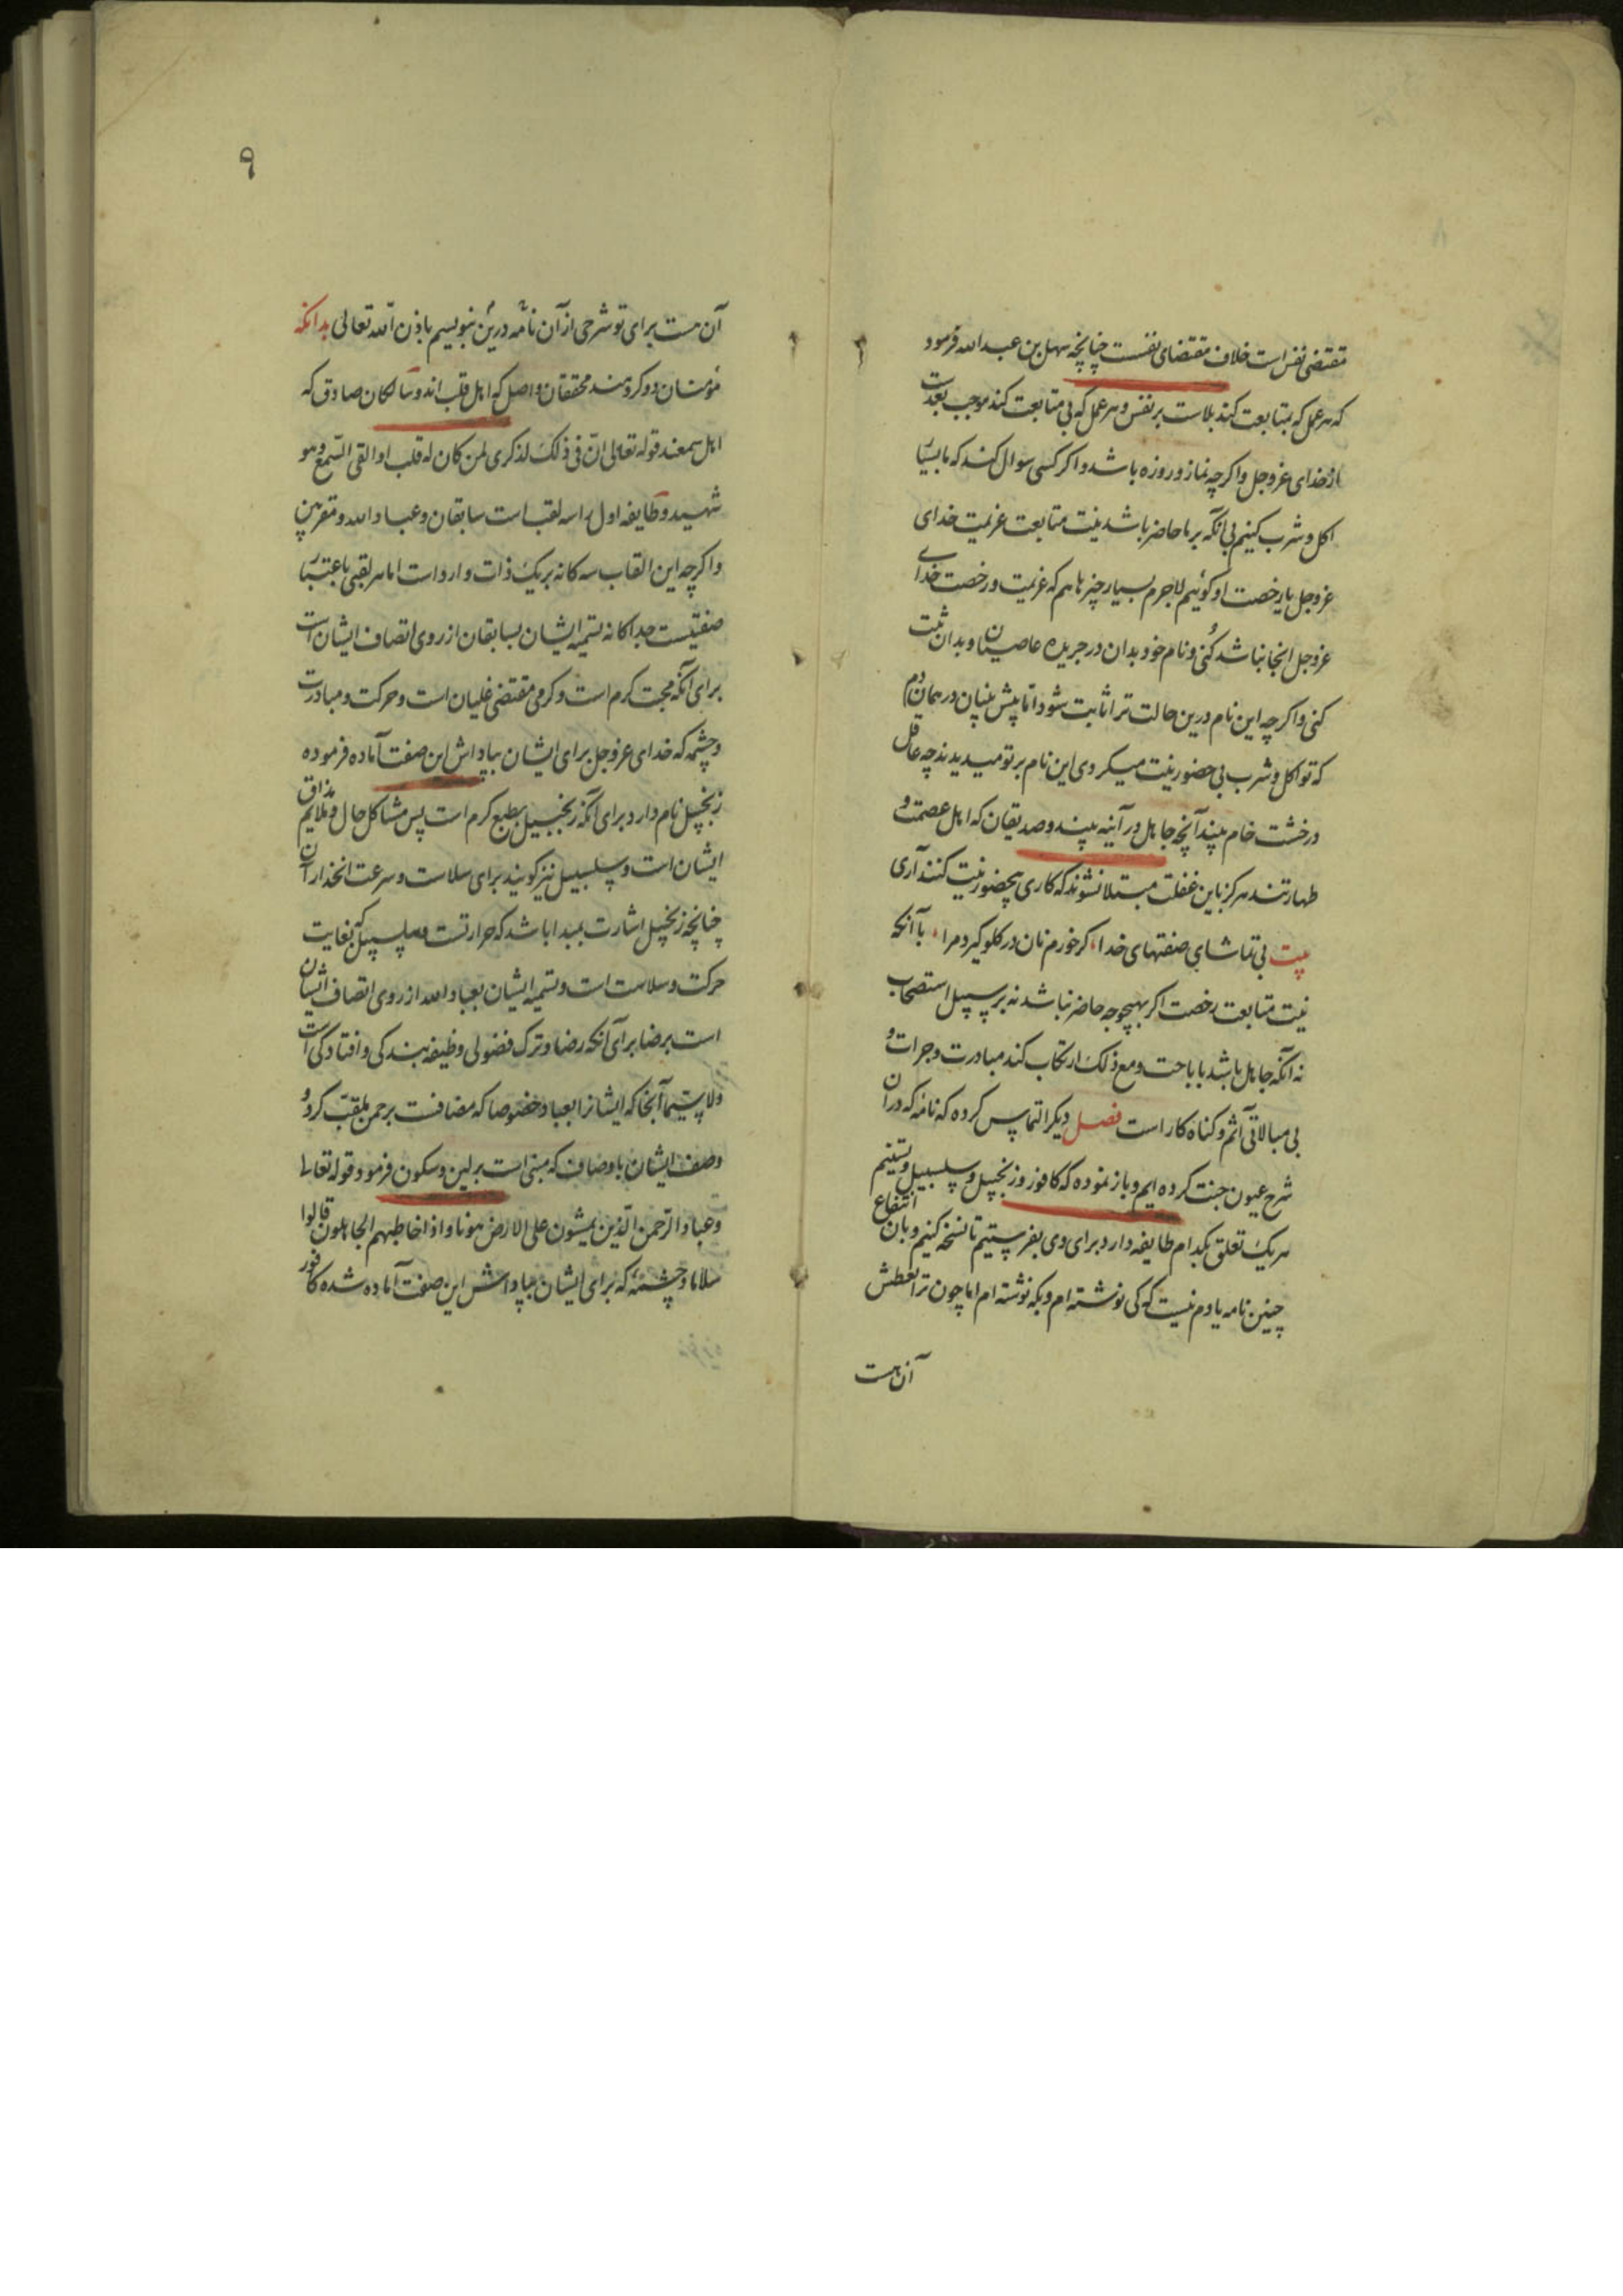 مقتضی نفس است خلاف مقتضای نفست چنانچه سهل بن عبد الله فرمود
که هر عمل که بمتابعت کند بلاست بر نفس و هر عمل که بی متابعت کند موجب بعدست
از خدای عز وجل و اگرچه نماز و روزه باشد و اگر کسی سوال کند که ما بسیار
اکل و شرب کنیم بی آنکه بر ما حاضر باشد نیت متابعت عزیمت خدای
عز وجل یا رخصت او گوئیم لاجرم بسیار چیزها هم که عزیمت و رخصت خدای
عز وجل انجا نباشد کنی و نام خود بدان در جریده عاصیان و بدان ثبت
کنی و اگرچه این نام درین حالت ترا ثابت شود اما پیش بینان در همان دم
که تو اکل و شرب بی حضور نیت میکردی این نام بر تو میدیدند چه عاقل
در خشت خام بیند آنچه جاهل در آئینه بیند و صدیقان که اهل عصمت و
طهارتند هرگز باین غفلت مبتلا نشوند که کاری بیحضور نیت کنند آری
بیت بی تماشای صفتهای خدا گر خورم نان در گلو گیرد مرا با آنکه
نیت متابعت رخصت اگر بهیچوجه حاضر نباشد نه بر سبیل استصحاب
نه آنکه جاهل باشد باباحت و مع ذلک ارتکاب کند مبادرت و جرات و
بی مبالاتی آثم و گناه کار است فصل دیگر التماس کرده که نامه که در آن
شرح عیون جنت کرده ایم و باز نموده که کافور و زنجبیل و سلسبیل و تسنیم
هر یک تعلق بکدام طایفه دارد برای وی بفرستیم تا نسخه کنیم و بان انتفاع
چنین نامه یادم نیست که کی نوشته ام و بکه نوشته ام اما چون ترا تعطش
آن هست
۹
آن هست برای تو شرحی از آن نامه درین بنویسم باذن الله تعالی بدانکه
مؤمنان دو گروهند محققان واصل که اهل قلب اند و سالکان صادق که
اهل سمعند قوله تعالی ان فی ذلک لذکری لمن کان له قلب او القی السمع و هو
شهید و طایفه اول را سه لقب است سابقان و عباد الله و مقربین
و اگرچه این القاب سه کانه بر یک ذات وارد است اما هر لقبی باعتبار
صفتیست جداگانه تسمیه ایشان بسابقان از روی اتصاف ایشان است
برای آنکه محبت گرم است و گرمی مقتضی غلیان است و حرکت و مبادرت
و چشمه که خدای عز وجل برای ایشان بپاداش این صفت آماده فرموده
زنجبیل نام دارد برای آنکه زنجبیل بطبع گرم است پس مشاکل حال و ملایم مذاق
ایشان است و سلسبیل نیز گویند برای سلاست و سرعت انحدار آن
چنانچه زنجبیل اشارت بمبدا باشد که حرارتست و سلسبیل که بغایت
حرکت و سلاست است و تسمیه ایشان بعباد الله از روی اتصاف ایشان
است برضا برای آنکه رضا و ترک فضولی وظیفه بندگی و افتادگی است
ولا سیما آنجا که ایشانرا بعباد خصوصا که مضافست برحمن ملقب کرد و
وصف ایشان باوصاف که مبنی است بر لین و سکون فرمود قوله تعالی
و عباد الرحمن الذین یمشون علی الارض هونا و اذا خاطبهم الجاهلون قالوا
سلاما و چشمه که برای ایشان بپاداش این صفت آماده شده کافور